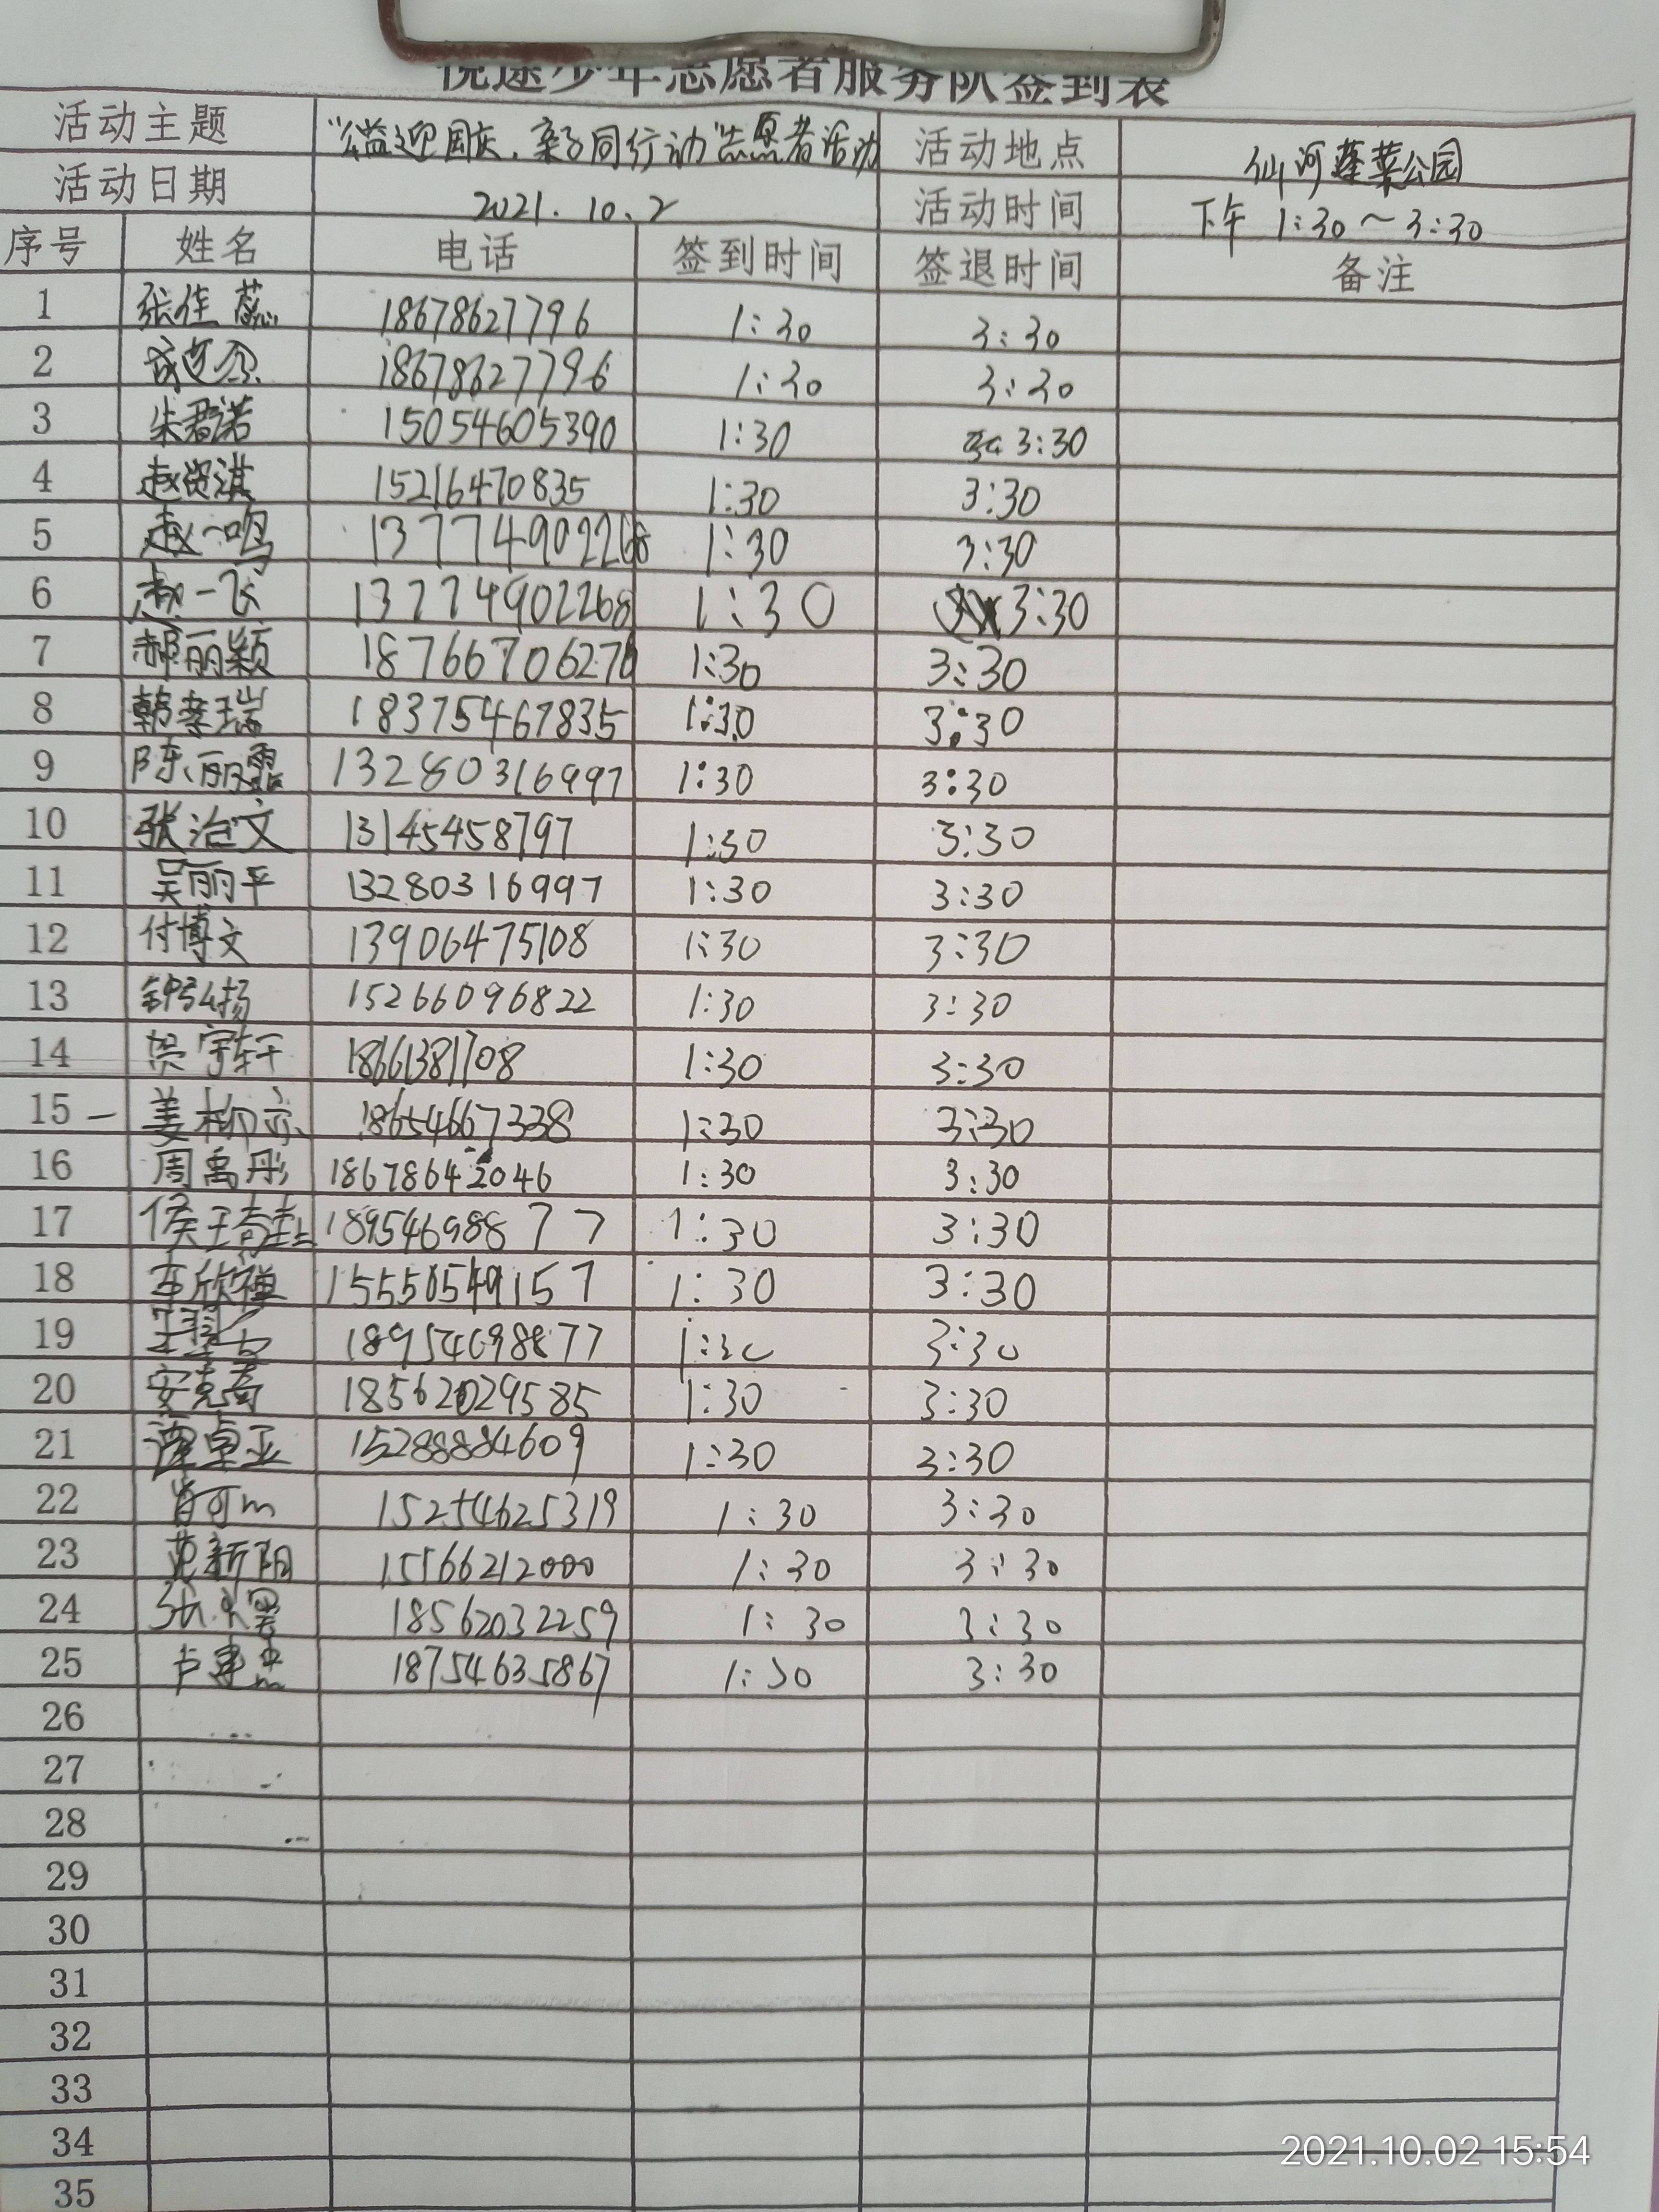 悦途少年志愿者服务队签到表
活动主题 "公益迎国庆,亲子同行动"志愿者活动 活动地点 仙河蓬莱公园
活动日期 2021.10.2 活动时间 下午 1:30~3:30
序号 姓名 电话 签到时间 签退时间 备注
1 张佳蕊 18678627796 1:30 3:30
2 18678627796 1:30 3:30
3 朱君诺 15054605390 1:30 3:30
4 赵贤淇 15216470835 1:30 3:30
5 赵一鸣 137774902268 1:30 3:30
6 赵一飞 13774902268 1:30 3:30
7 郝丽颖 18766706276 1:30 3:30
8 韩孝瑞 18375467835 1:30 3:30
9 陈丽霞 13280316997 1:30 3:30
10 张治文 13145458797 1:30 3:30
11 吴丽平 13280316997 1:30 3:30
12 付博文 13906475108 1:30 3:30
13 钟弘扬 15266096822 1:30 3:30
14 宇轩 18661381708 1:30 3:30
15 姜柳亦 18654667338 1:30 3:30
16 周禹彤 18678642046 1:30 3:30
17 侯王 18954698877 1:30 3:30
18 李欣禅 15550549157 1:30 3:30
19 18954698877 1:30 3:30
20 安克 18562029585 1:30 3:30
21 谭卓亚 15288884609 1:30 3:30
22 肖可 15254625319 1:30 3:30
23 范新阳 15166212000 1:30 3:30
24 18562032259 1:30 3:30
25 卢 18754635867 1:30 3:30
26
27
28
29
30
31
32
33
34
35
2021.10.02 15:54